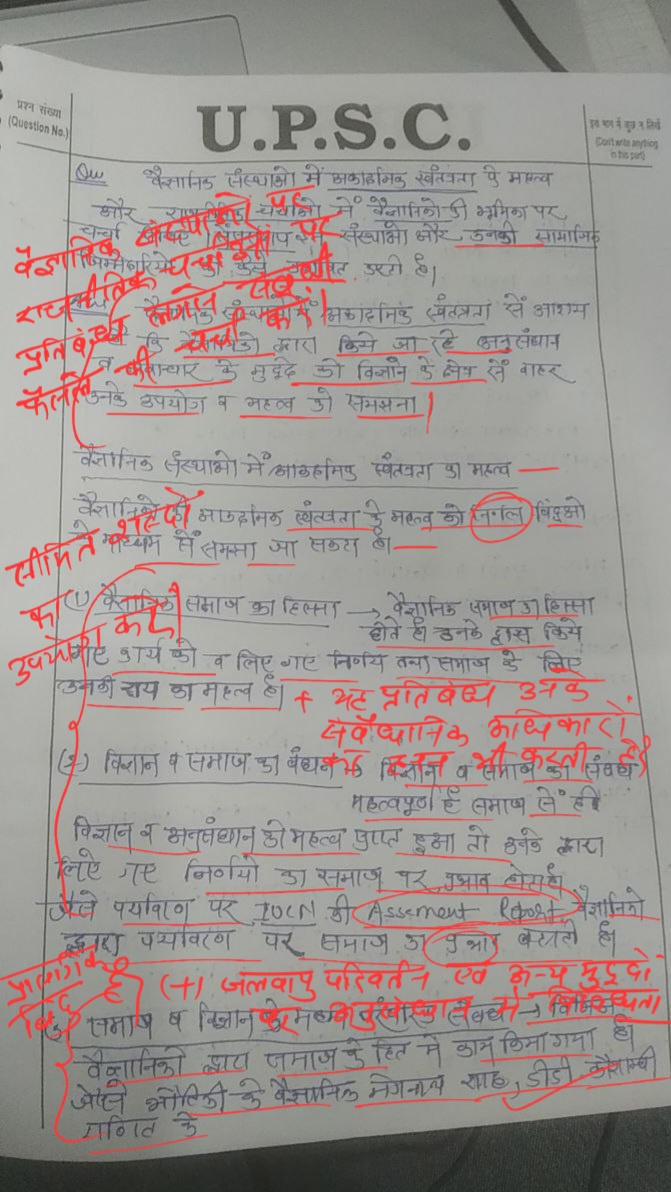 प्रश्न संख्या
(Question No.)
U.P.S.C.
इस भाग में कुछ न लिखें
(Don't write anything
in this part)
Qus वैज्ञानिक संस्थाओ में अकादमिक स्वतंत्रता के महत्व
और राजनीतिक चर्चाओ में वैज्ञानिको की भूमिका पर
चर्चा संस्थाओ और उनकी सामाजिक
जिम्मेदारियो को कैसे प्रभावित करती है।
वैज्ञानिक संस्थानो पर
राजनीतिक चर्चा पर
प्रतिबंधो
चर्चा करें।
में अकादमिक स्वतंत्रता से आशय
कि वैज्ञानिको द्वारा किये जा रहे अनुसंधान
व नवाचार के मुद्दे को विज्ञान के क्षेत्र से बाहर
उनके उपयोग व महत्व को समझना।
वैज्ञानिक संस्थाओ में अकादमिक स्वतंत्रता का महत्व —
वैज्ञानिको की अकादमिक स्वंतत्रता के महत्व को निम्न बिंदुओ
के माध्यम से समझा जा सकता है।—
सीमित शब्दो
का
उपयोग करें
(1) वैज्ञानिक समाज का हिस्सा → वैज्ञानिक समाज का हिस्सा
होते है। उनके द्वारा किये
गए कार्य को व लिए गए निर्णय तथा समाज के लिए
उनकी राय का महत्व है।
+ यह प्रतिबंध उनके
संवैधानिक अधिकारो
का हनन भी करती है
(2) विज्ञान व समाज का बंधन → विज्ञान व समाज का संबंध
महत्वपूर्ण है समाज से ही
विज्ञान व अनुसंधान को महत्व प्राप्त हुआ तो उनके द्वारा
लिए गए निर्णयो का समाज पर प्रभाव होता है
जैसे पर्यावरण पर IUCN की Assement Report वैज्ञानिको
द्वारा पर्यावरण पर समाज का प्रभाव बताती है।
प्रासंगिक
बिंदु है
(+) जलवायु परिवर्तन एवं अन्य मुद्दो
पर अनुसंधान में विशेषज्ञता
समाज व विज्ञान के मध्य संबंध → विभिन्न
वैज्ञानिको द्वारा समाज के हित में कार्य किया गया है।
जैसे भौतिकी के वैज्ञानिक मेघनाथ साहा, डीडी कौशाम्बी
गणित के